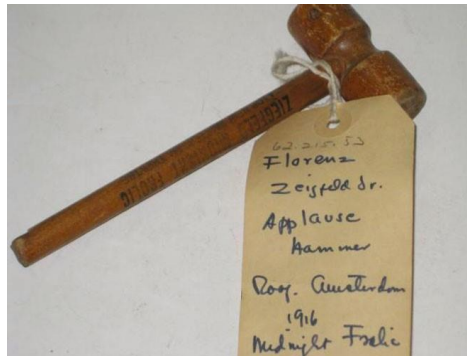 ZIEGFELD MIDNIGHT FROLIC
62.215.53
Florenz
Zeigfeld Jr.
Applause
Hammer
Roof. Amsterdam
1916
Midnight Frolic